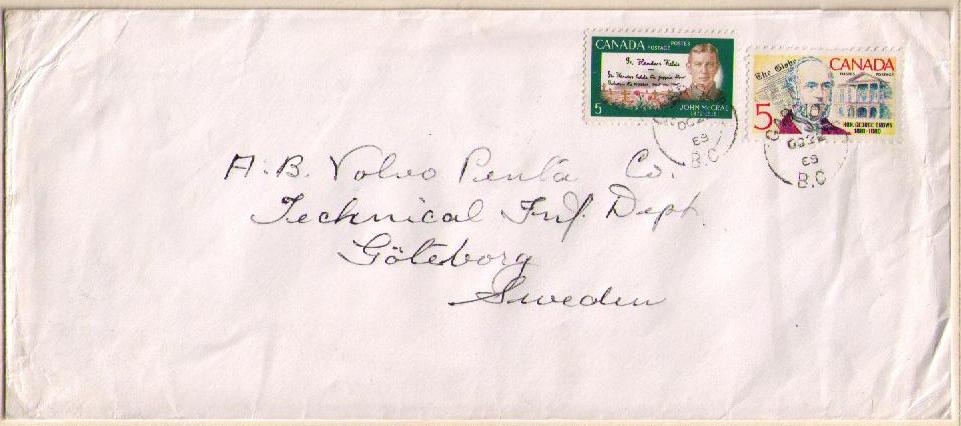 CANADA POSTAGE POSTES
In Flanders Fields
In Flanders fields the poppies blow
Between the crosses, row on row,
5 JOHN McCRAE
1872-1918
The Globe
CANADA
POSTES POSTAGE
5
HON. GEORGE BROWN
1818-1880
OC 22
69
B.C
OC 22
69
B.C
A.B. Volvo Penta Co.
Technical Inf. Dept.
Göteborg
Sweden